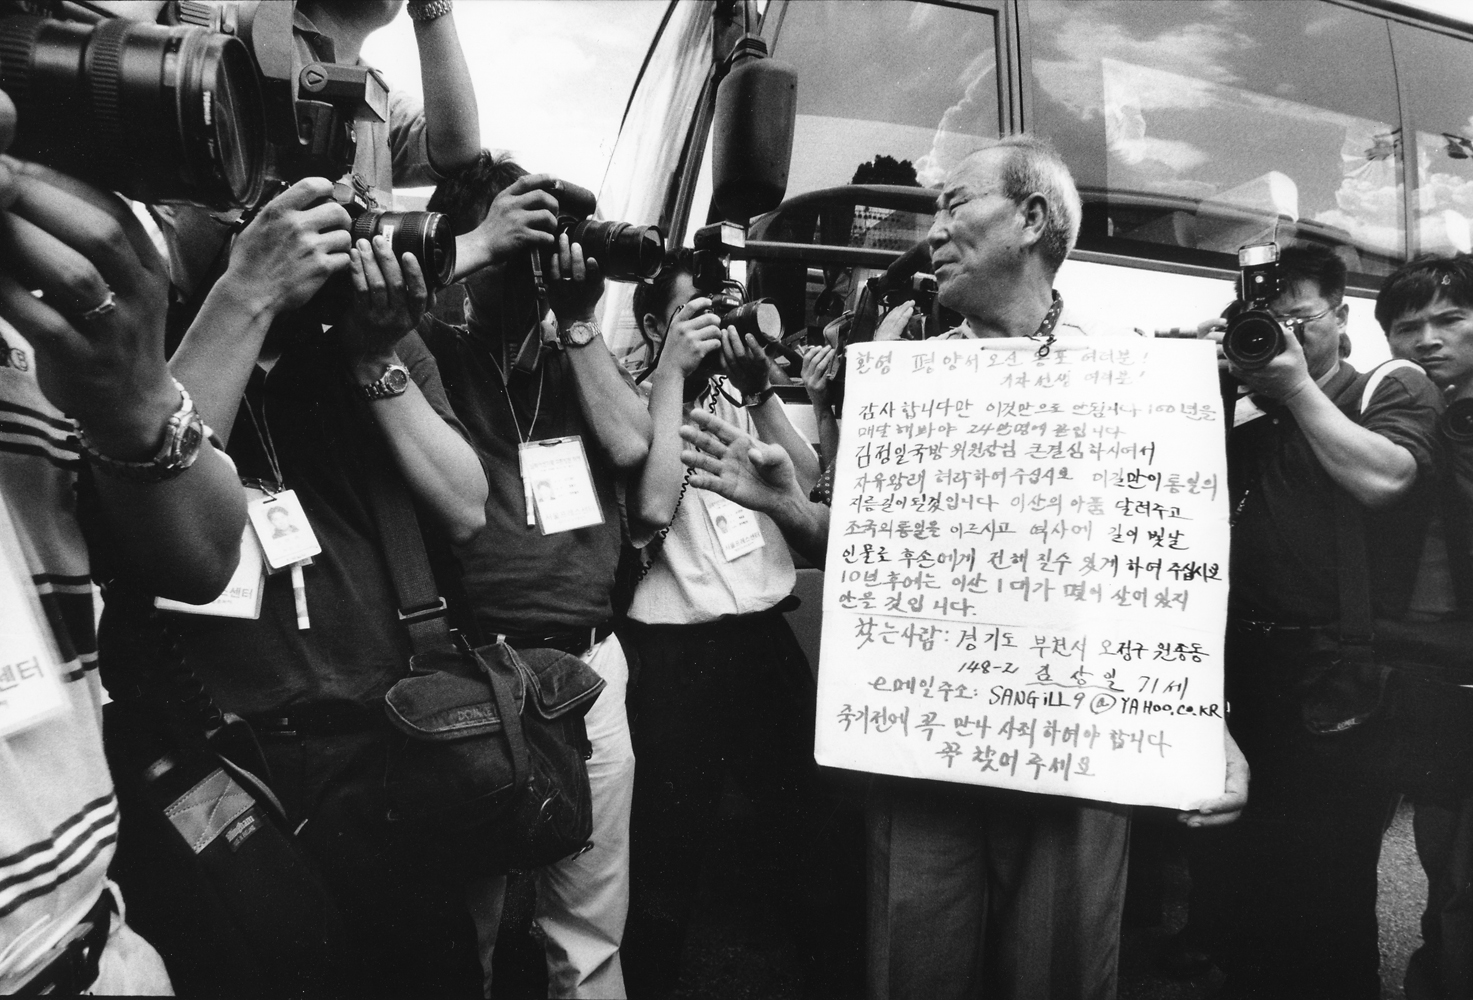 환영 평양서 오신 동포 여러분!
기자 선생 여러분!
감사합니다만 이것만으로 안됩니다 100년을
매달 해봐야 24만명에 끝입니다
김정일국방위원장님 큰결심하시여서
자유왕래 허락하여주십시오 이길만이통일의
지름길이될것입니다 이산의 아픔 달려주고
조국의통일을 이르시고 역사에 길이 빛날
인물로 후손에게 전해 질수 있게 하여 주십시요
10년후에는 이산 1대가 몇이 살어 있지
안을 것입니다.
찾는사람: 경기도 부천시 오정구 원종동
148-2 김상일 71세
e메일주소: SANGiLL9@YAHoo.co.KR
죽기전에 꼭 만나 사죄하여야 합니다
꼭 찾어 주세요
센터
센터
DOMKE